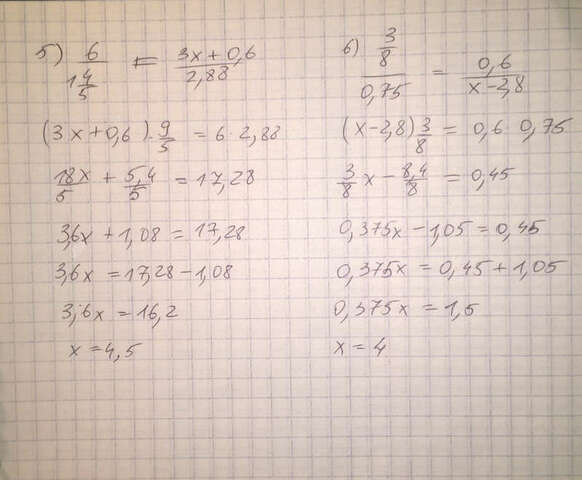 5) 6 / 1 4/5 = (3x + 0,6) / 2,88
(3x + 0,6) · 9/5 = 6 · 2,88
18x/5 + 5,4/5 = 17,28
3,6x + 1,08 = 17,28
3,6x = 17,28 - 1,08
3,6x = 16,2
x = 4,5
6) (3/8) / 0,75 = 0,6 / (x - 2,8)
(x - 2,8) 3/8 = 0,6 · 0,75
3/8 x - 8,4/8 = 0,45
0,375x - 1,05 = 0,45
0,375x = 0,45 + 1,05
0,375x = 1,5
x = 4